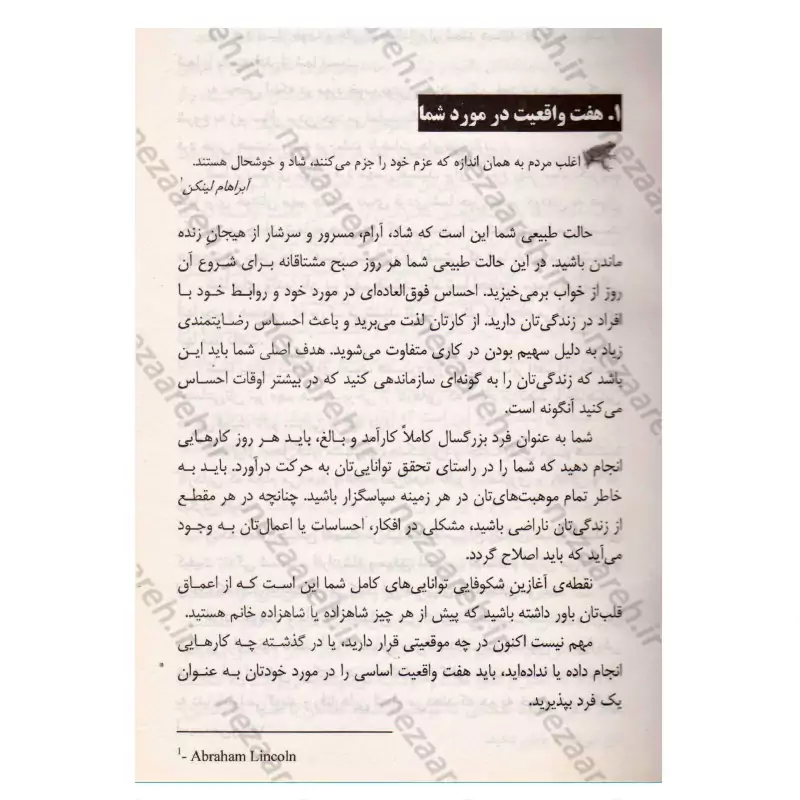 ۱ـ هفت واقعیت در مورد شما
اغلب مردم به همان اندازه که عزم خود را جزم می‌کنند، شاد و خوشحال هستند.
آبراهام لینکن¹
حالت طبیعی شما این است که شاد، آرام، مسرور و سرشار از هیجانِ زنده
ماندن باشید. در این حالت طبیعی شما هر روز صبح مشتاقانه برای شروع آن
روز از خواب برمی‌خیزید. احساس فوق‌العاده‌ای در مورد خود و روابط خود با
افراد در زندگی‌تان دارید. از کارتان لذت می‌برید و باعث احساس رضایتمندی
زیاد به دلیل سهیم بودن در کاری متفاوت می‌شوید. هدف اصلی شما باید این
باشد که زندگی‌تان را به گونه‌ای سازماندهی کنید که در بیشتر اوقات احساس
می‌کنید آنگونه است.
شما به عنوان فرد بزرگسال کاملاً کارآمد و بالغ، باید هر روز کارهایی
انجام دهید که شما را در راستای تحقق توانایی‌تان به حرکت درآورد. باید به
خاطر تمام موهبت‌های‌تان در هر زمینه سپاسگزار باشید. چنانچه در هر مقطع
از زندگی‌تان ناراضی باشید، مشکلی در افکار، احساسات یا اعمال‌تان به وجود
می‌آید که باید اصلاح گردد.
نقطه‌ی آغازینِ شکوفایی توانایی‌های کامل شما این است که از اعماق
قلب‌تان باور داشته باشید که پیش از هر چیز شاهزاده یا شاهزاده خانم هستید.
مهم نیست اکنون در چه موقعیتی قرار دارید، یا در گذشته چه کارهایی
انجام داده یا نداده‌اید، باید هفت واقعیت اساسی را در مورد خودتان به عنوان
یک فرد بپذیرید.
¹- Abraham Lincoln
nezaareh.ir